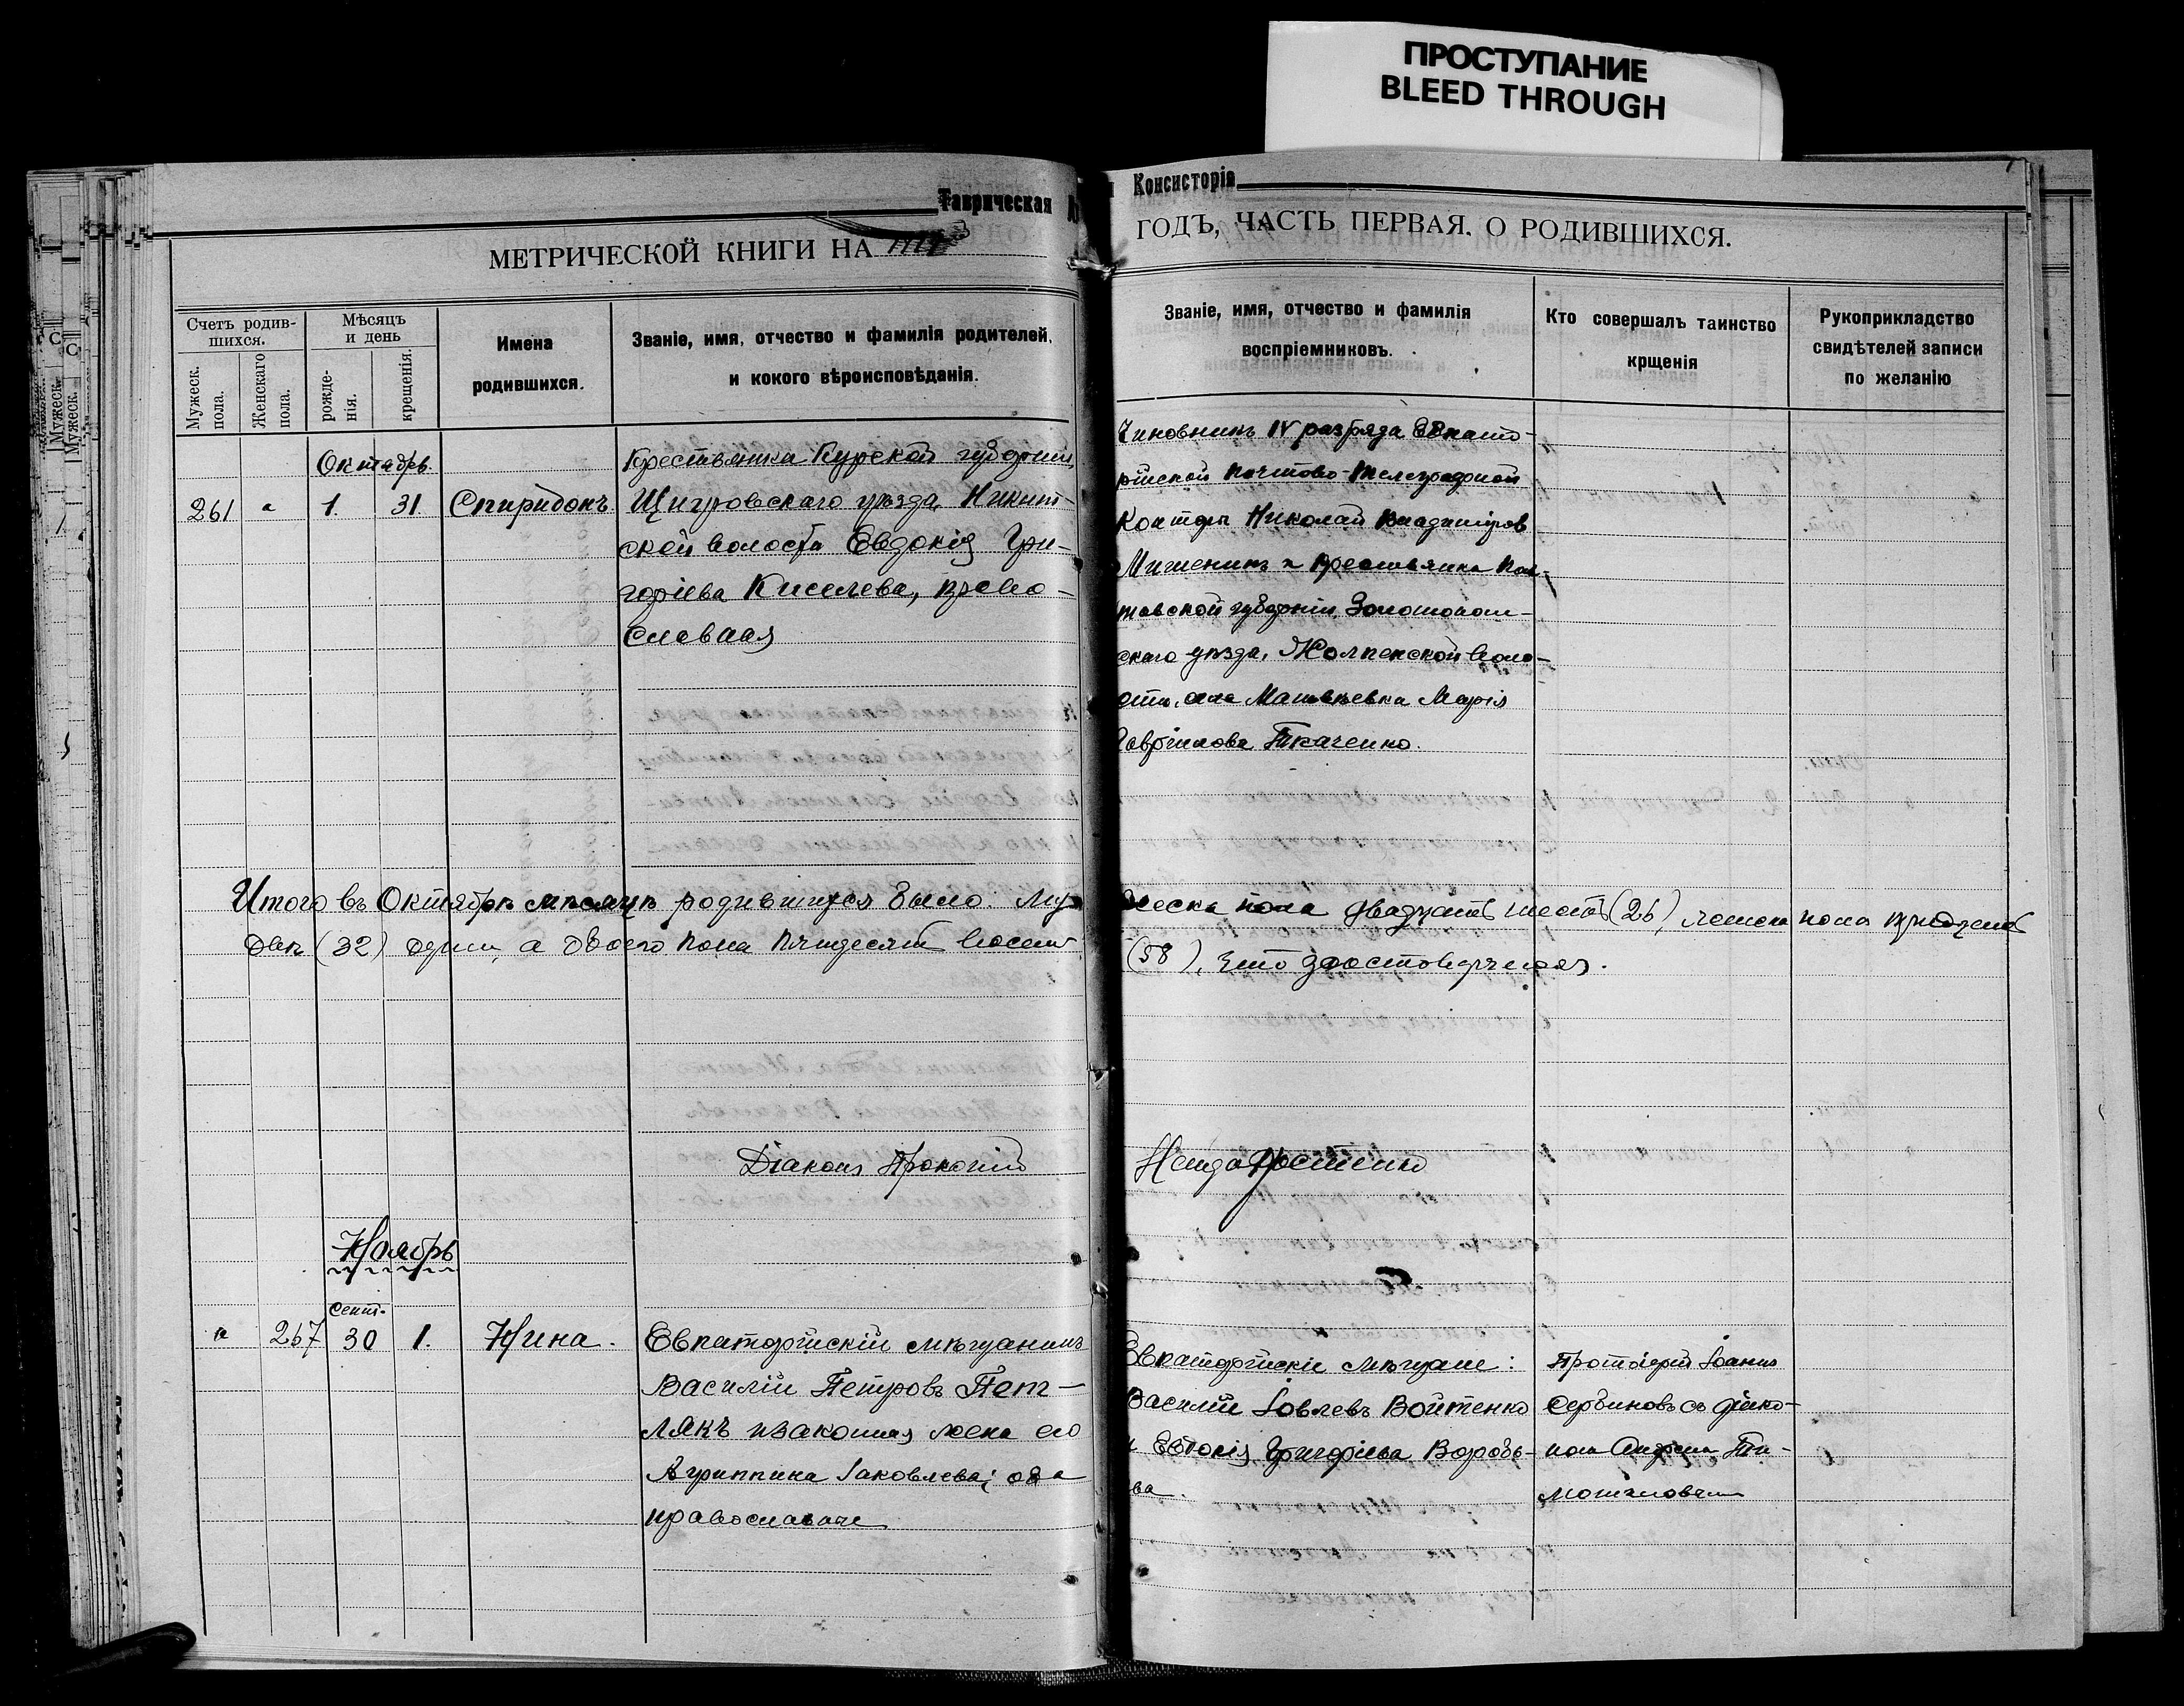 ПРОСТУПАНИЕ
BLEED THROUGH
Таврическая
Консисторія
МЕТРИЧЕСКОЙ КНИГИ НА
ГОДЪ, ЧАСТЬ ПЕРВАЯ, О РОДИВШИХСЯ.
Счетъ родив-
шихся.
Мужеск. пола.
Женскаго пола.
Мѣсяцъ
и день
рожде-
нія.
крещенія.
Имена
родившихся.
Званіе, имя, отчество и фамилія родителей,
и кокого вѣроисповѣданія.
Званіе, имя, отчество и фамилія
воспріемниковъ.
Кто совершалъ таинство
крщенія
Рукоприкладство
свидѣтелей записи
по желанію
Октябрь.
261 " 1. 31. Спиридонъ
Крестьянка Курской губерніи,
Щигровскаго уѣзда, Никит-
ской волости Евдокія Гри-
горіева Киселева, право-
славная
Чиновникъ IV разряда Евпато-
рійской Почтово-Телеграфной
Конторы Николай Владиміров
Мишенинъ и крестьянка Пол-
тавской губерніи, Золотонош-
скаго уѣзда, волo-
сти, села Матвѣевка Марія
Гавріилова Ткаченко.
Итого въ Октябрѣ мѣсяцѣ родившихся было: Му-
жеска пола двадцать шесть (26), женска пола тридцать
двѣ (32) души, а обоего пола пятдесят восемь
(58), что удостовѣряемъ.
Діаконъ Прокопій
Ноябрь
Сент.
" 267 30 1. Нина.
Евпаторійскій мѣщанинъ
Василій Петровъ Пет-
лякъ и законная жена его
Агриппина Іаковлева; оба
православные
Евпаторійскіе мѣщане:
Василій Іовлевъ Войтенко
и Евдокія Григоріева Воробь-
ва.
Протоіерей Іоаннъ
Сербиновъ съ діако-
номъ Ти-